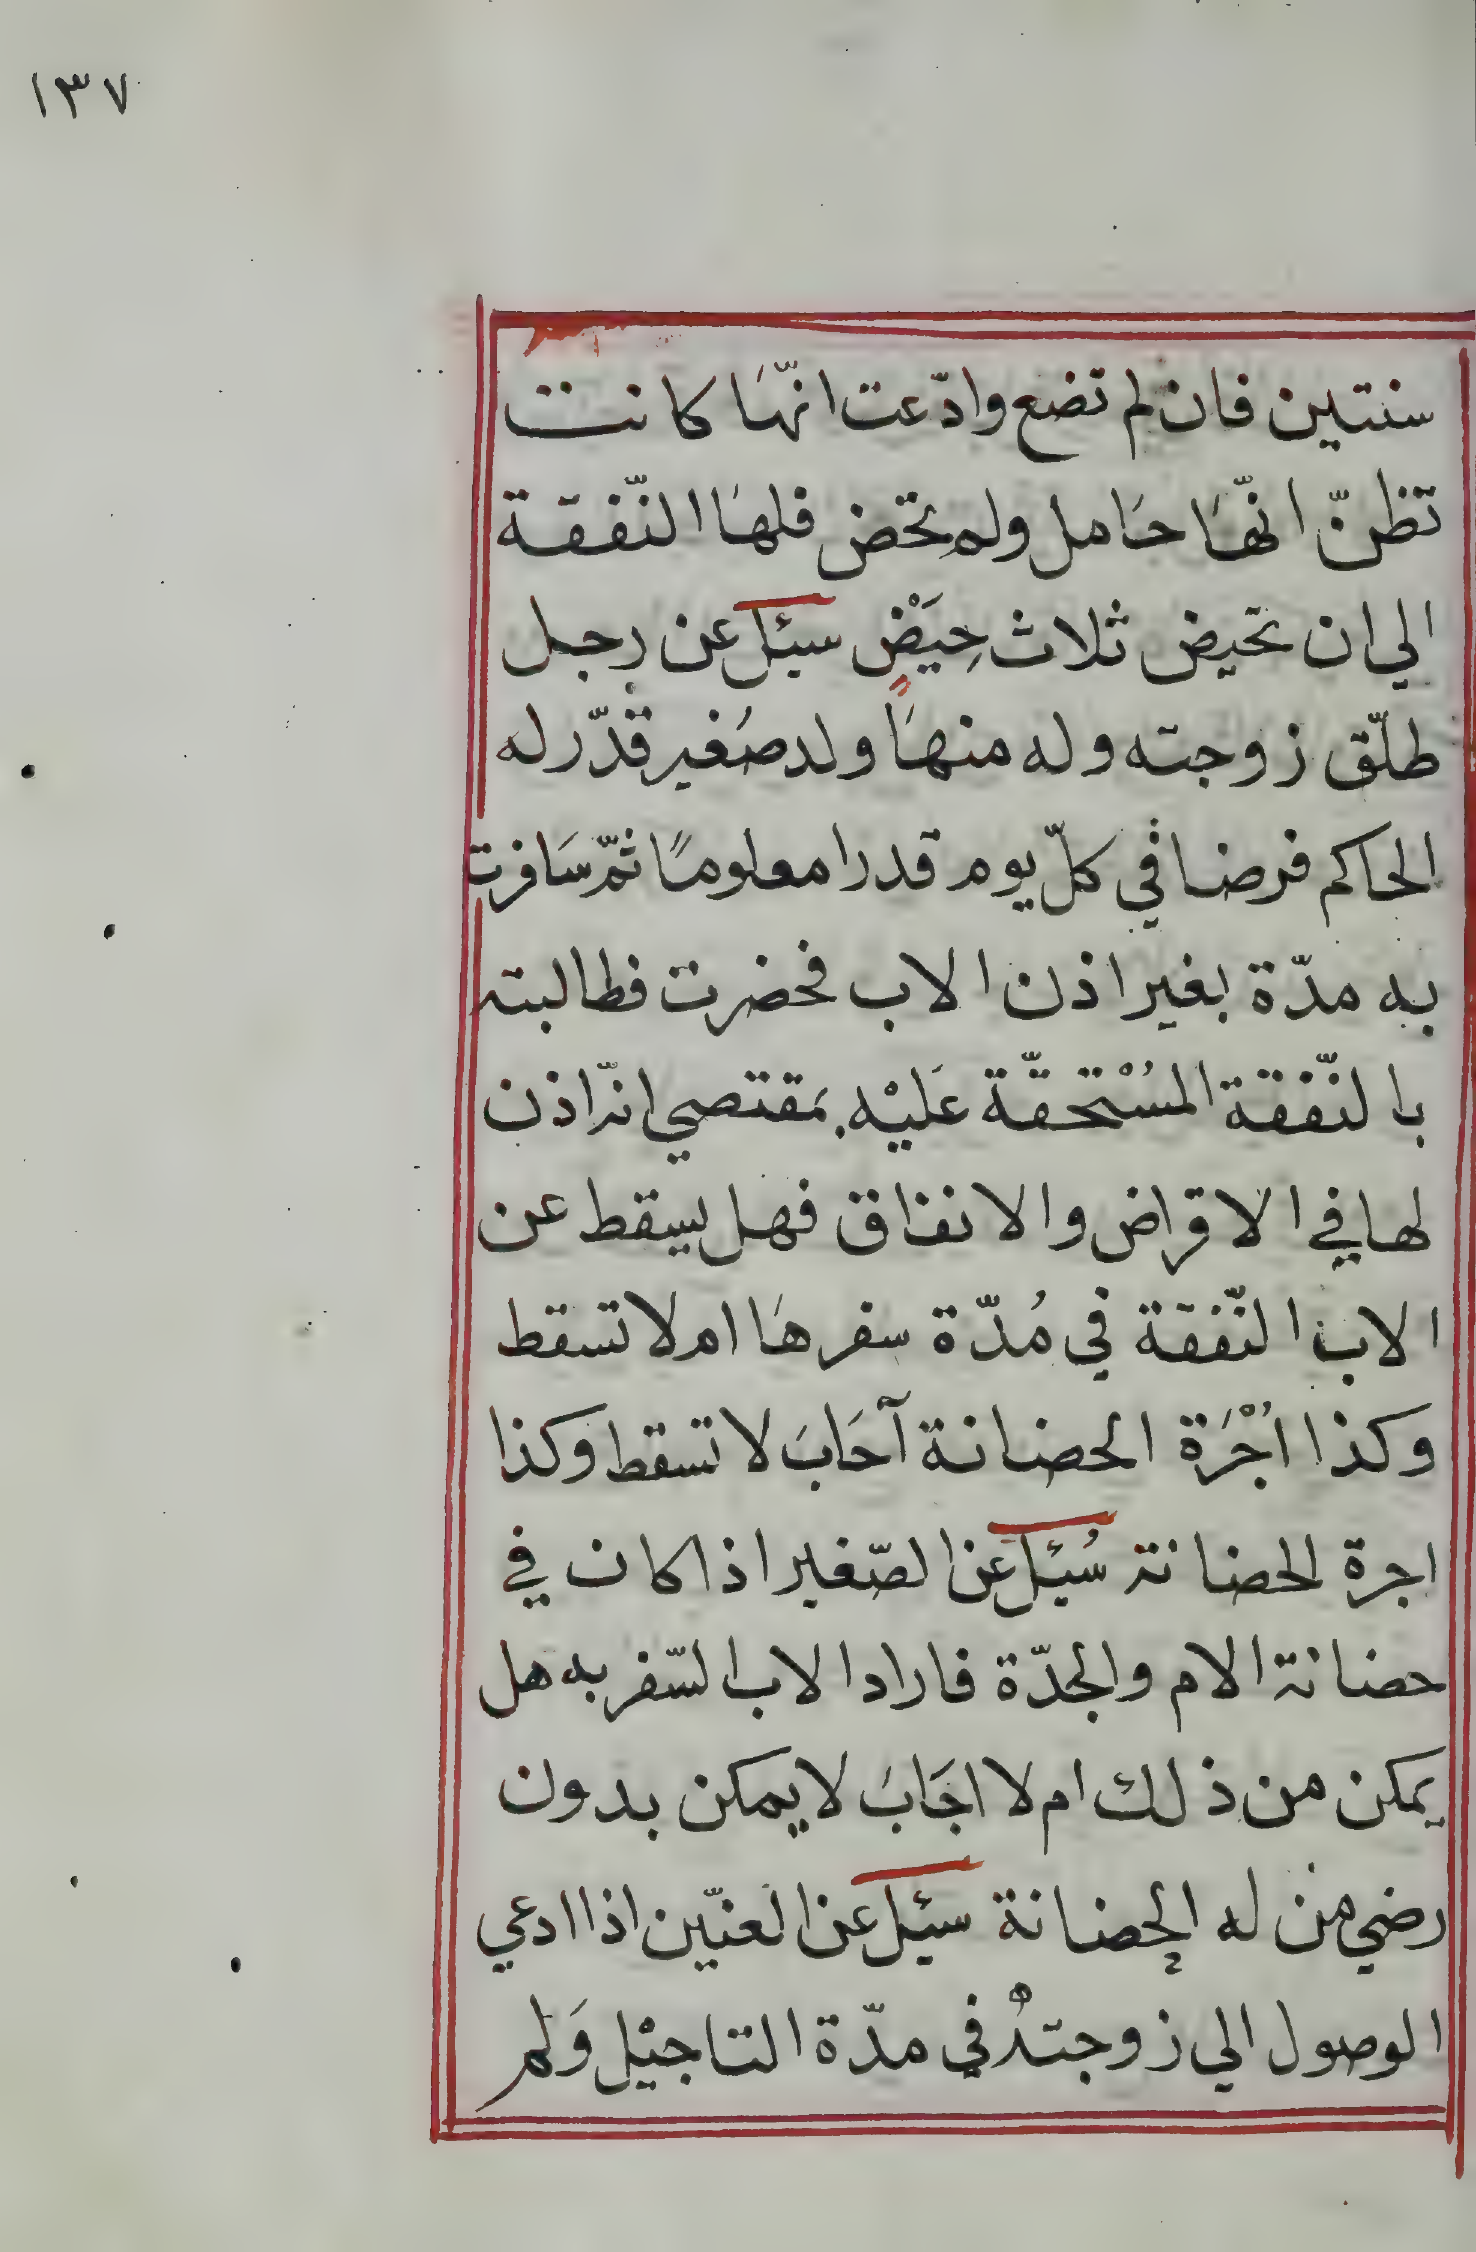 ١٣٧
سنتين فان لم تضع وادّعت انّهَا كانت
تظنّ انّهَا حَامل ولم تحض فلهَا النّفقة
الي ان تحيض ثلاث حِيَضْ سئل عن رجل
طلّق زوجته وله منهَا ولد صُغير قدّر له
الحاكم فرضا في كلّ يوم قدرا معلومًا ثمّ سَافرت
به مدّة بغير اذن الاب فحضرت فطالبته
بالنّفقة المسُتْحقّة عَليْه بمقتصي انّه اذن
لها في الاقراض والانفاق فهل يسقط عن
الاب النّفقة في مُدّة سفرهَا ام لا تسقط
وكذا اُجْرَة الحضانة آحَابَ لا تسقط وكذا
اجرة الحضانة سُئل عن الصّغير اذا كان في
حضانة الام والجدّة فاراد الاب السّفر به هل
يمكن من ذلك ام لا اجَابَ لا يمكن بدون
رضي من له الحضانة سئل عن العنّين اذا ادعي
الوصول الي زوجته في مدّة التاجيْل وَلم